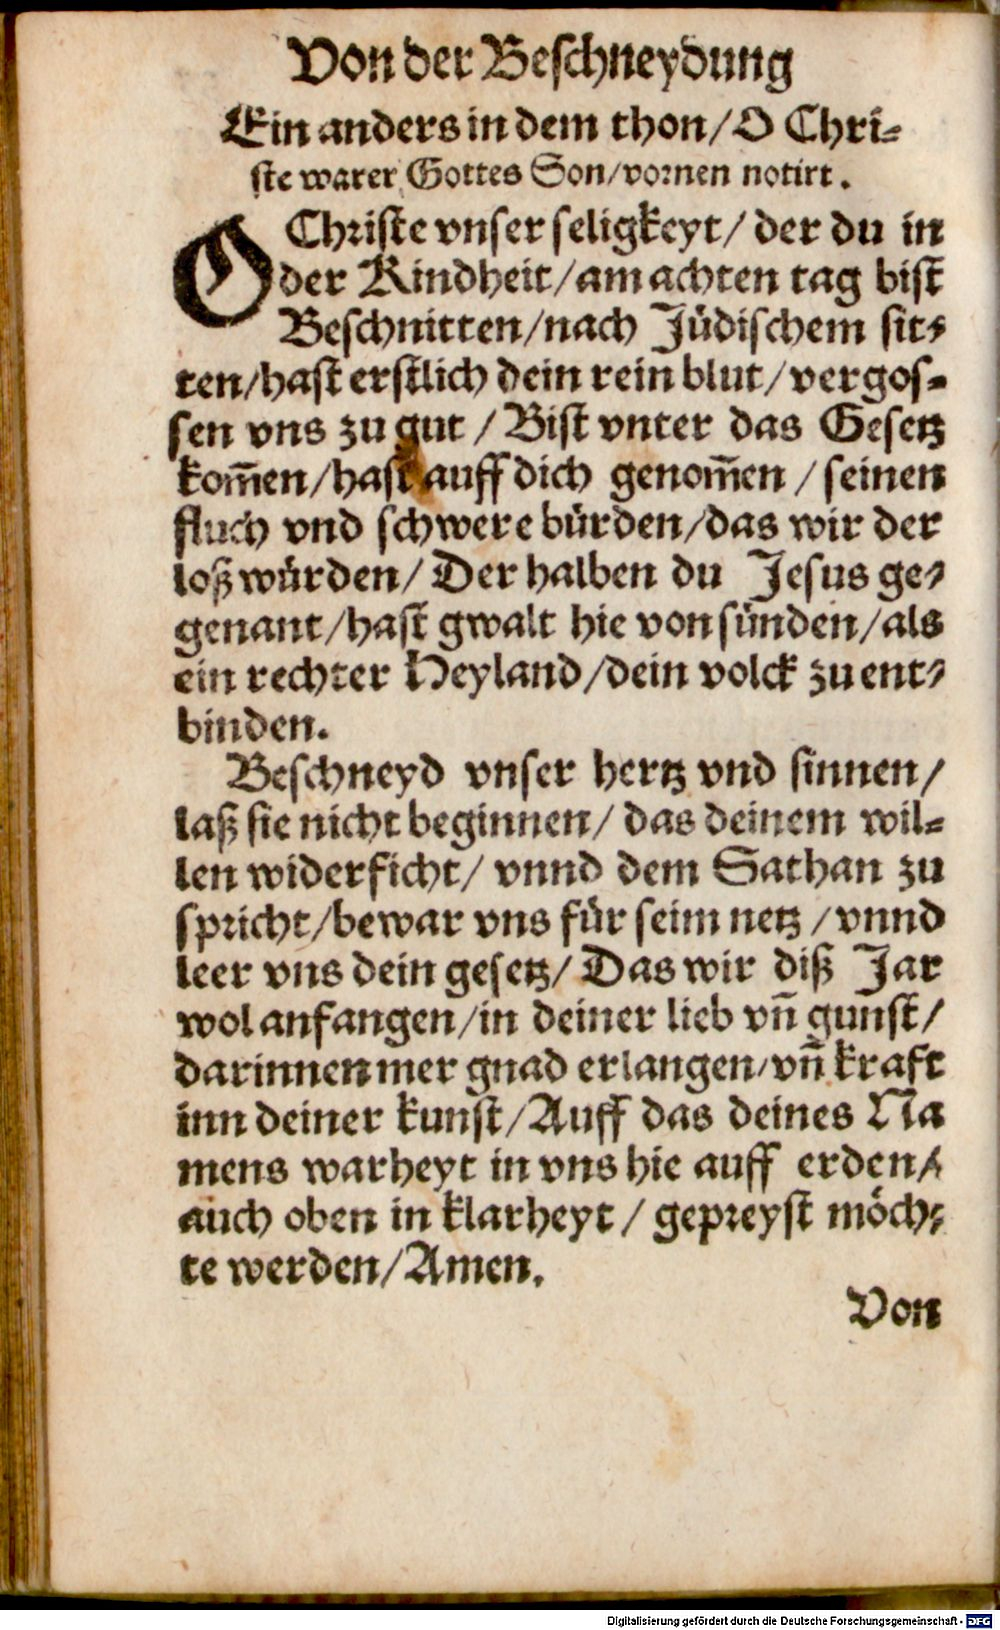 Von der Beschneydung
Ein anders in dem thon/O Chri-
ste warer Gottes Son/vornen notirt.
O Christe vnser seligkeyt/ der du in
der Kindheit/am achten tag bist
Beschnitten/nach Jüdischem sit-
ten/hast erstlich dein rein blut/vergos-
sen vns zu gut / Bist vnter das Gesetz
kom̃en/hast auff dich genom̃en / seinen
fluch vnd schwere bürden/das wir der
loß würden/ Der halben du Jesus ge-
genant/hast gwalt hie von sünden/als
ein rechter Heyland/dein volck zu ent-
binden.
Beschneyd vnser hertz vnd sinnen/
laß sie nicht beginnen/ das deinem wil-
len widerficht/ vnnd dem Sathan zu
spricht/bewar vns für seim netz /vnnd
leer vns dein gesetz/ Das wir diß Jar
wol anfangen/in deiner lieb vñ gunst/
darinnen mer gnad erlangen/vñ kraft
inn deiner kunst/Auff das deines Na
mens warheyt in vns hie auff erden/
auch oben in klarheyt / gepreyst möch-
te werden/Amen.
Von
Digitalisierung gefördert durch die Deutsche Forschungsgemeinschaft - DFG